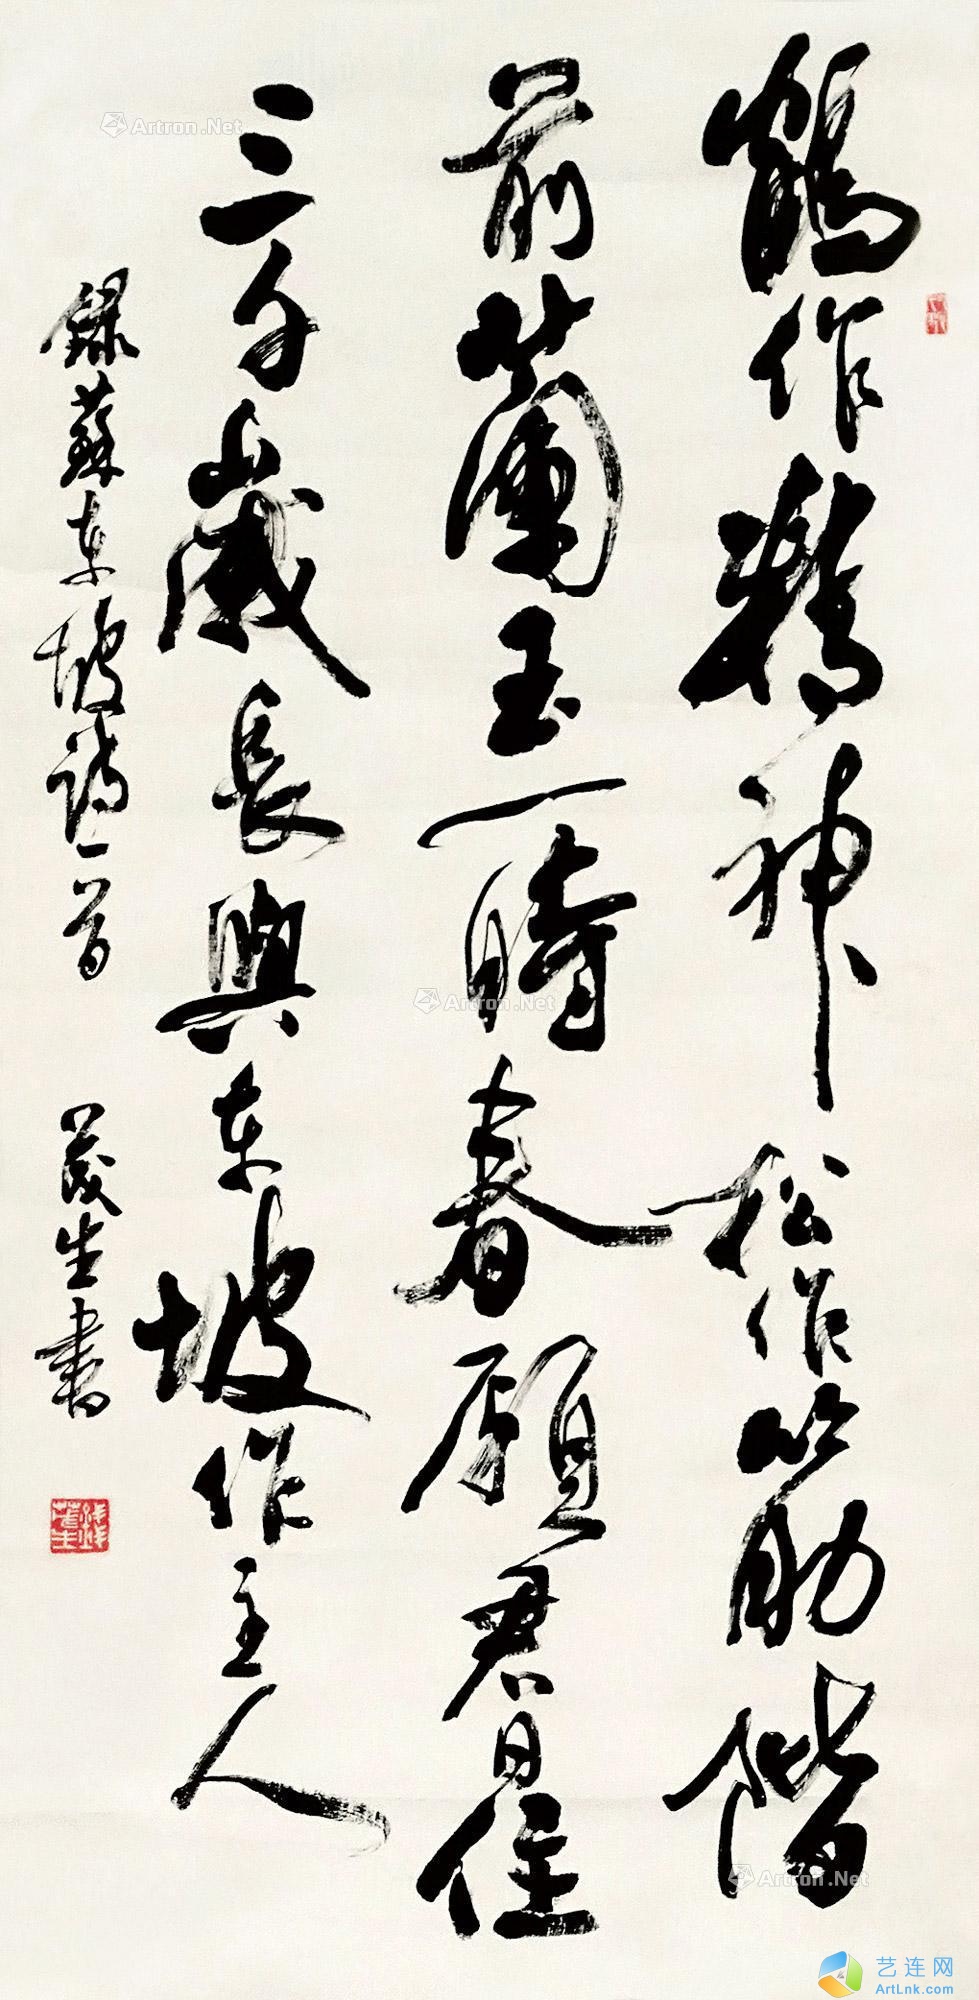 鶴作精神松作筋階
前蘭玉一時春願君且住
三千歲長與東坡作主人
錄蘇東坡詩一首 茂生書
Artron.Net
Artron.Net
Artron.Net
艺连网
ArtLnk.com